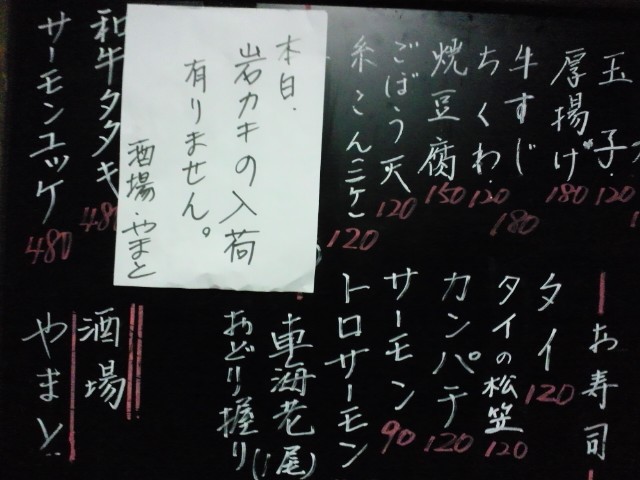 玉子
120
厚揚げ
180
牛すじ
180
ちくわ
120
焼豆腐
150
ごぼう天
120
糸こん(二ケ)
120
本日、
岩カキの入荷
有りません。
酒場・やまと
和牛タタキ
480
サーモンユッケ
480
お寿司
タイ
120
タイの松笠
120
カンパチ
120
サーモン
90
トロサーモン
車海老
おどり握り(1尾)
酒場
やまと